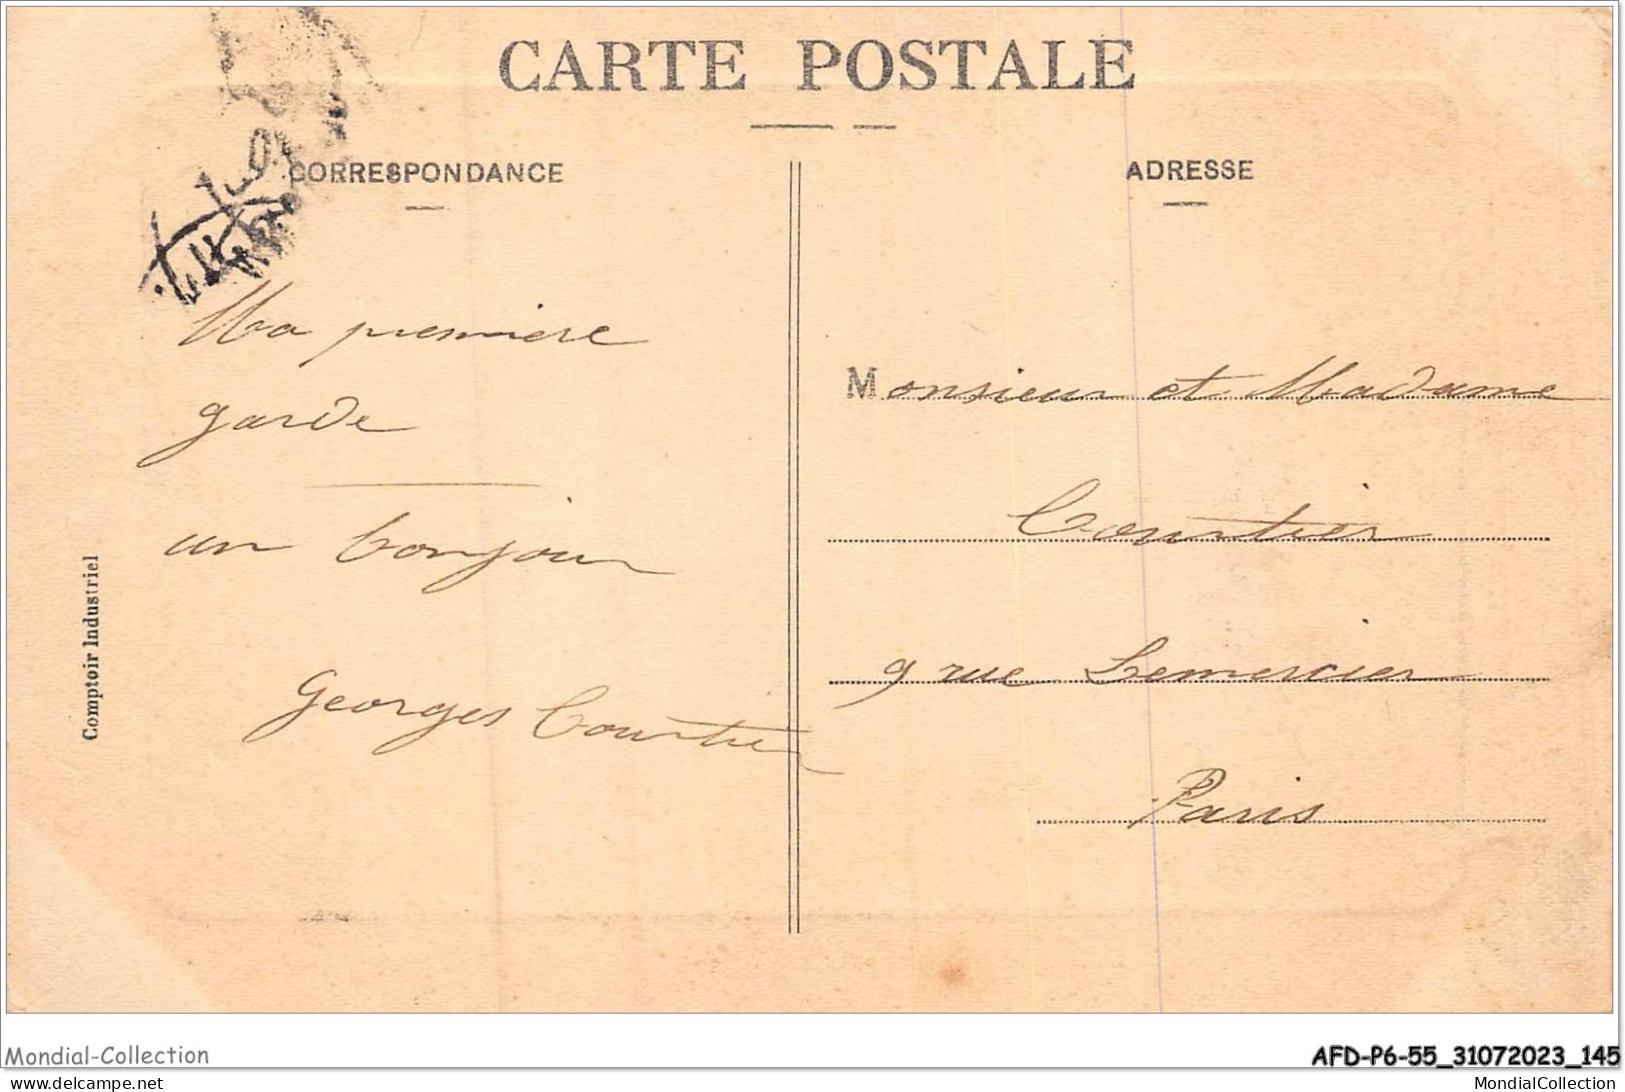 CARTE POSTALE
CORRESPONDANCE
ADRESSE
Ma premiere
garde
un bonjour
Georges Courtier
Monsieur et Madame
Courtier
9 rue Lemercier
Paris
Comptoir Industriel
Mondial-Collection
AFD-P6-55_31072023_145
www.delcampe.net
MondialCollection